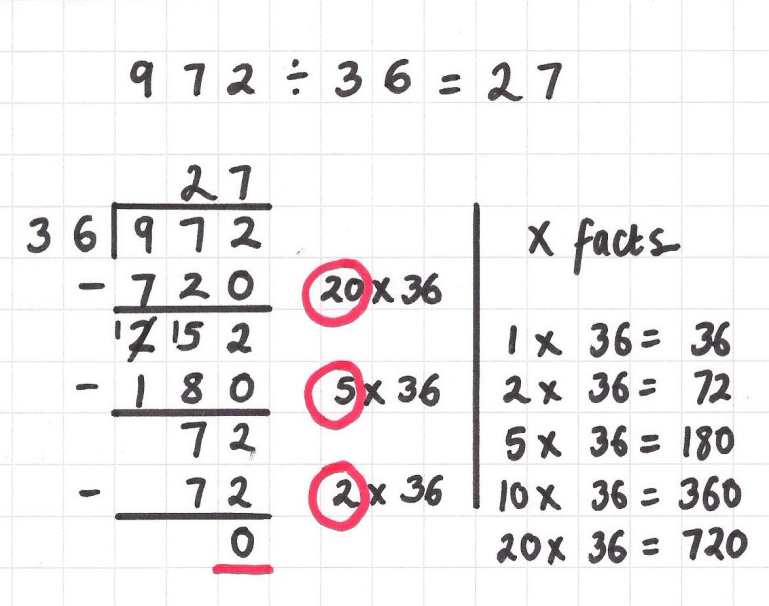 972 ÷ 36 = 27
27
36 972
- 720 20 x 36
1 2 15 2
- 180 5 x 36
72
- 72 2 x 36
0
x facts
1 x 36 = 36
2 x 36 = 72
5 x 36 = 180
10 x 36 = 360
20 x 36 = 720